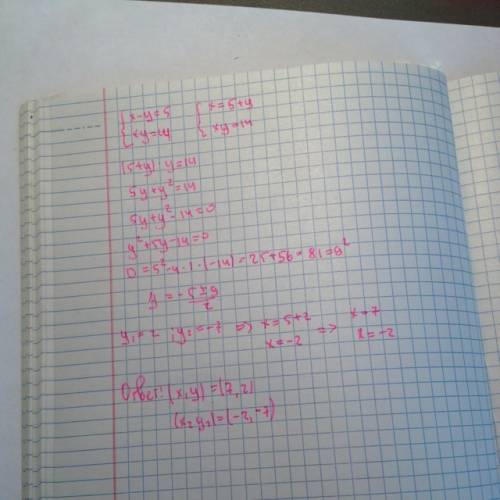 {x-y=5 {x=5+y
{xy=14 {xy=14
(5+y) y=14
5y+y²=14
5y+y²-14=0
y²+5y-14=0
D=5²-4·1·(-14)=25+56=81=9²
y=-5±9/2
y₁=2 ; y₂=-7 => x=5+2 => x=7
x=-2 x=-2
Ответ: (x,y)=(7,2)
(x₂y₂)=(-2,-7)